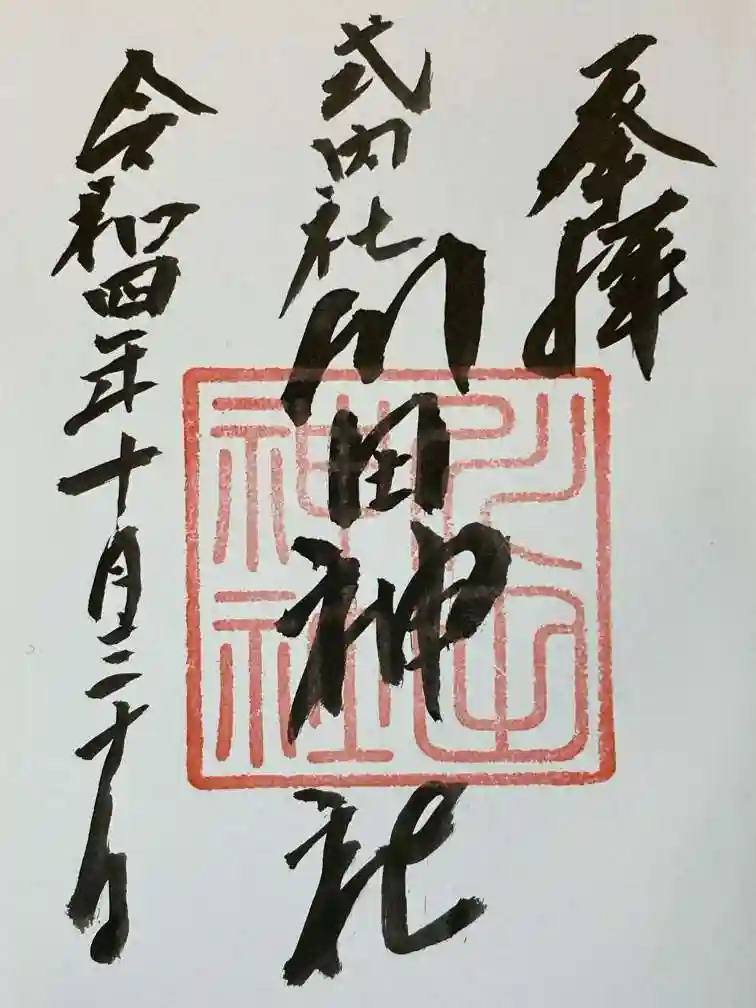 奉拝
式内社
川田神社
神社
令和四年十月三十日